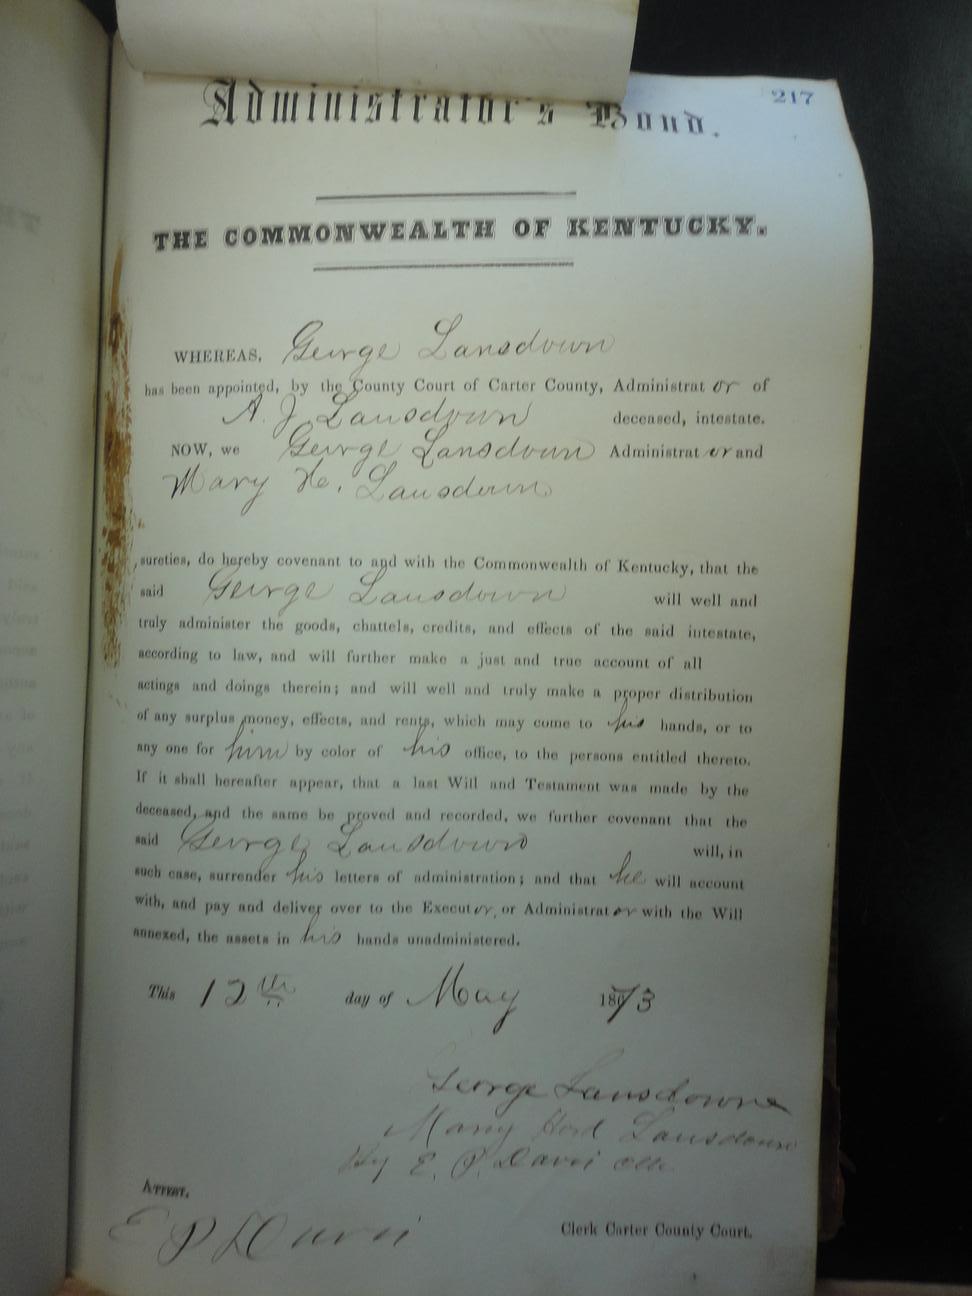 217
Administrator's Bond.
THE COMMONWEALTH OF KENTUCKY.
WHEREAS, George Lansdown
has been appointed, by the County Court of Carter County, Administrat or of
A. J. Lansdown deceased, intestate.
NOW, we George Lansdown Administrat or and
Mary H. Lansdown
sureties, do hereby covenant to and with the Commonwealth of Kentucky, that the
said George Lansdown will well and
truly administer the goods, chattels, credits, and effects of the said intestate,
according to law, and will further make a just and true account of all
actings and doings therein; and will well and truly make a proper distribution
of any surplus money, effects, and rents, which may come to his hands, or to
any one for him by color of his office, to the persons entitled thereto.
If it shall hereafter appear, that a last Will and Testament was made by the
deceased, and the same be proved and recorded, we further covenant that the
said George Lansdown will, in
such case, surrender his letters of administration; and that he will account
with, and pay and deliver over to the Execut or, or Administrat or with the Will
annexed, the assets in his hands unadministered.
This 12th day of May 1873
George Lansdowne
Mary Hord Lansdowne
By E. P. Davis
ATTEST.
E P Davis Clerk Carter County Court.